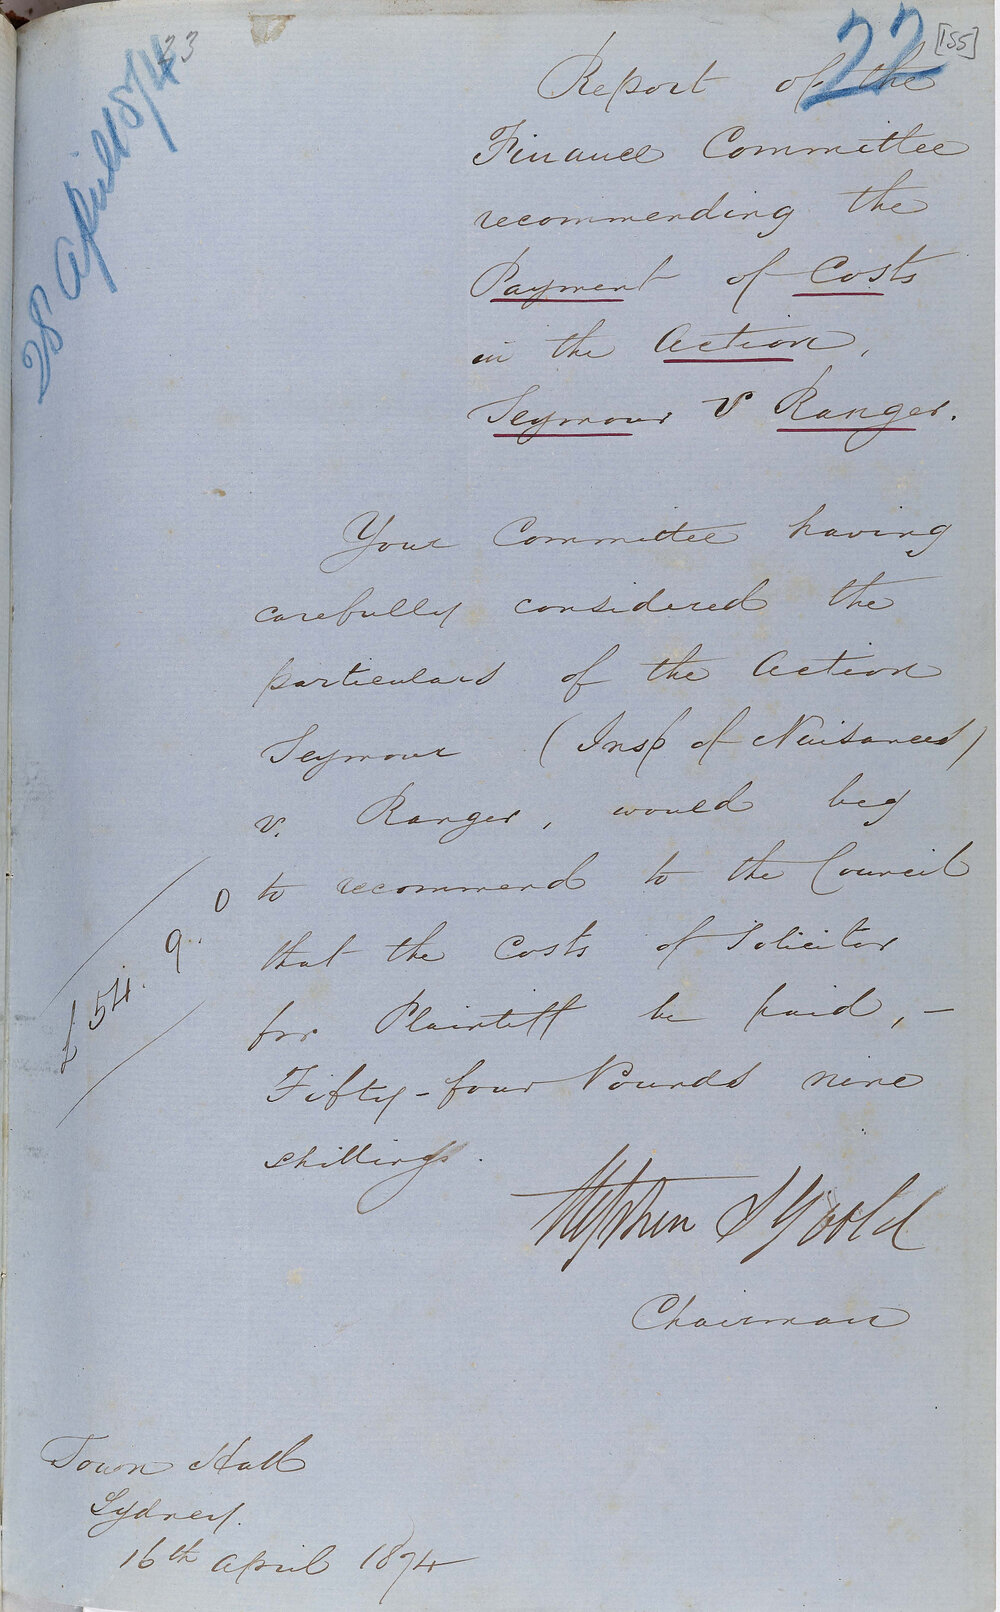 33
22
[155]
28 April 1874
Report of the
Finance Committee
recommending the
Payment of Costs
in the Action,
Seymour v Ranger.
Your Committee having
carefully considered the
particulars of the Action
Seymour (Insp of Nuisances)
v. Ranger, would beg
to recommend to the Council
that the Costs of Solicitor
for Plaintiff be paid, –
Fifty-four Pounds nine
shillings.
£54. 9. 0
Stephen S Goold
Chairman
Town Hall
Sydney.
16th April 1874